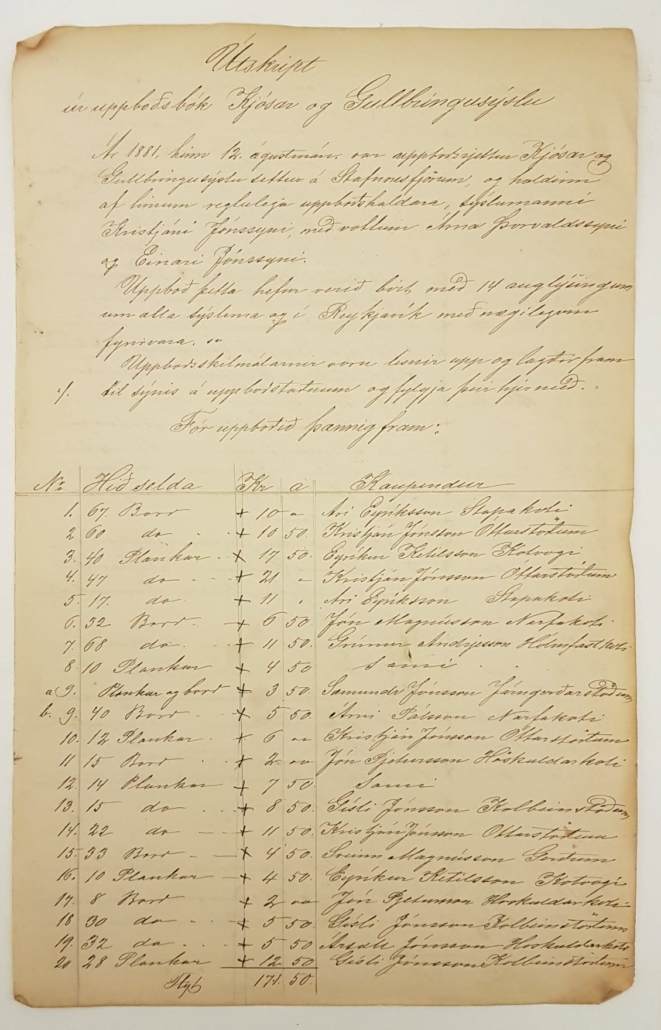 Útskript
úr uppboðsbók Kjósar og Gullbringusýslu
Ár 1881, hinn 12. ágústmán. var uppboðsrjettur Kjósar og
Gullbringusýslu settur á Stafnesfjörum, og haldinn
af hinum reglulega uppboðshaldara, sýslumanni
Kristjáni Jónssyni, með vottum Árna Þorvaldssyni
og Einari Jónssyni.
Uppboð þetta hefur verið birt með 14 auglýsingum
um alla sýsluna og í Reykjavík með nægilegum
fyrirvara.
Uppboðsskilmálarnir voru lesnir upp og lagðir fram
til sýnis á uppboðsstaðnum og fylgja þeir hjer með.
Fór uppboðið þannig fram:
No Hið selda Kr a Kaupendur
1. 67 Borð + 10 " Ari Eyríksson Stapakoti
2 60 do + 10 50. Kristján Jónsson Óttarstöðum
3. 40 Plankar + 17 50. Eyríkur Ketilsson Kotvogi
4. 47 do + 21 " Kristján Jónsson Óttarstöðum
5. 17. do + 11 " Ari Eyríksson Stapakoti
6. 32 Borð + 6 50 Jón Magnússon Narfakoti
7 68 do + 11 50. Grímur Andrjesson Hólmfastskoti
8 10 Plankar + 4 50 Sami
a 9. Plankar og borð + 3 50 Jónsson
b. 9. 40 Borð + 5 50 Árni Pálsson Narfakoti
10. 12 Plankar + 6 " Kristján Jónsson Óttarstöðum
11 15 Borð + 2 " Jón Pjetursson Höskuldarkoti
12 14 Plankar + 7 50 Sami
13. 15 do + 8 50. Gísli Jónsson Kolbeinstöðum
14. 22 do + 11 50. Kristján Jónsson Óttarstöðum
15. 33 Borð + 4 50. Sveinn Magnússon Gerðum
16. 10 Plankar + 4 50. Eyríkur Ketilsson Kotvogi
17. 8 Borð + 2 " Jón Pjetursson Höskuldarkoti
18 30 do + 5 50 Gísli Jónsson Kolbeinstöðum
19. 32 do + 5 50 Jónsson Höskuldarkoti
20 28 Plankar + 12. 50 Gísli Jónsson Kolbeinstöðum
Flyt 171. 50.